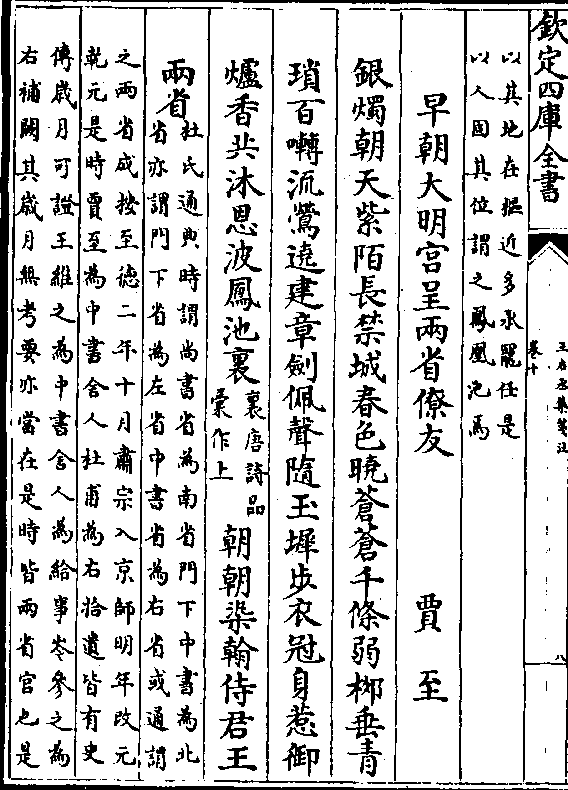 欽定四庫全書
王右丞集箋注
卷十
八
以其地在樞近多承寵任是
以人固其位謂之鳳凰池焉
早朝大明宫呈兩省僚友 賈至
銀燭朝天紫陌長禁城春色曉蒼蒼千條弱桞垂青
瑣百囀流鶯遶建章劍佩聲隨玉墀步衣冠身惹御
爐香共沐恩波鳳池裏裏唐詩品彚作上朝朝染翰侍君王
兩省杜氏通典時謂尚書省為南省門下中書為北
省亦謂門下省為左省中書省為右省或通謂
之兩省成按至徳二年十月肅宗入京師明年改元
乾元是時賈至為中書舍人杜甫為右拾遺皆有史
傳歲月可證王維之為中書舍人為給事岑參之為
右補闕其歲月無考要亦當在是時皆兩省官也是